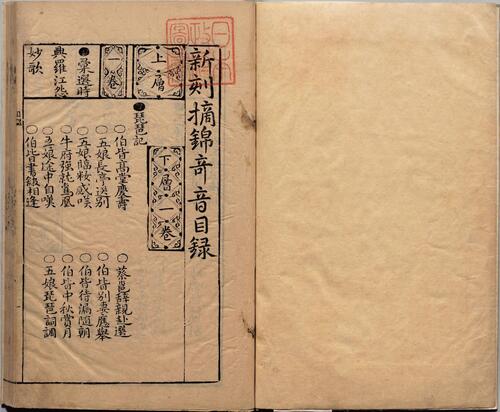 新刻摘錦奇音目錄
日本
政
圖
上層
一卷
彙選時
興羅江怨
妙歌
下層一卷
琵琶記
伯皆高堂慶壽
蔡邕辭親赴選
五娘長亭送別
伯皆別妻應舉
五娘臨粧感嘆
伯皆待漏隨朝
牛府強就鸞凰
伯皆中秋賞月
五娘途中自嘆
五娘琵琶詞調
伯皆書館相逢